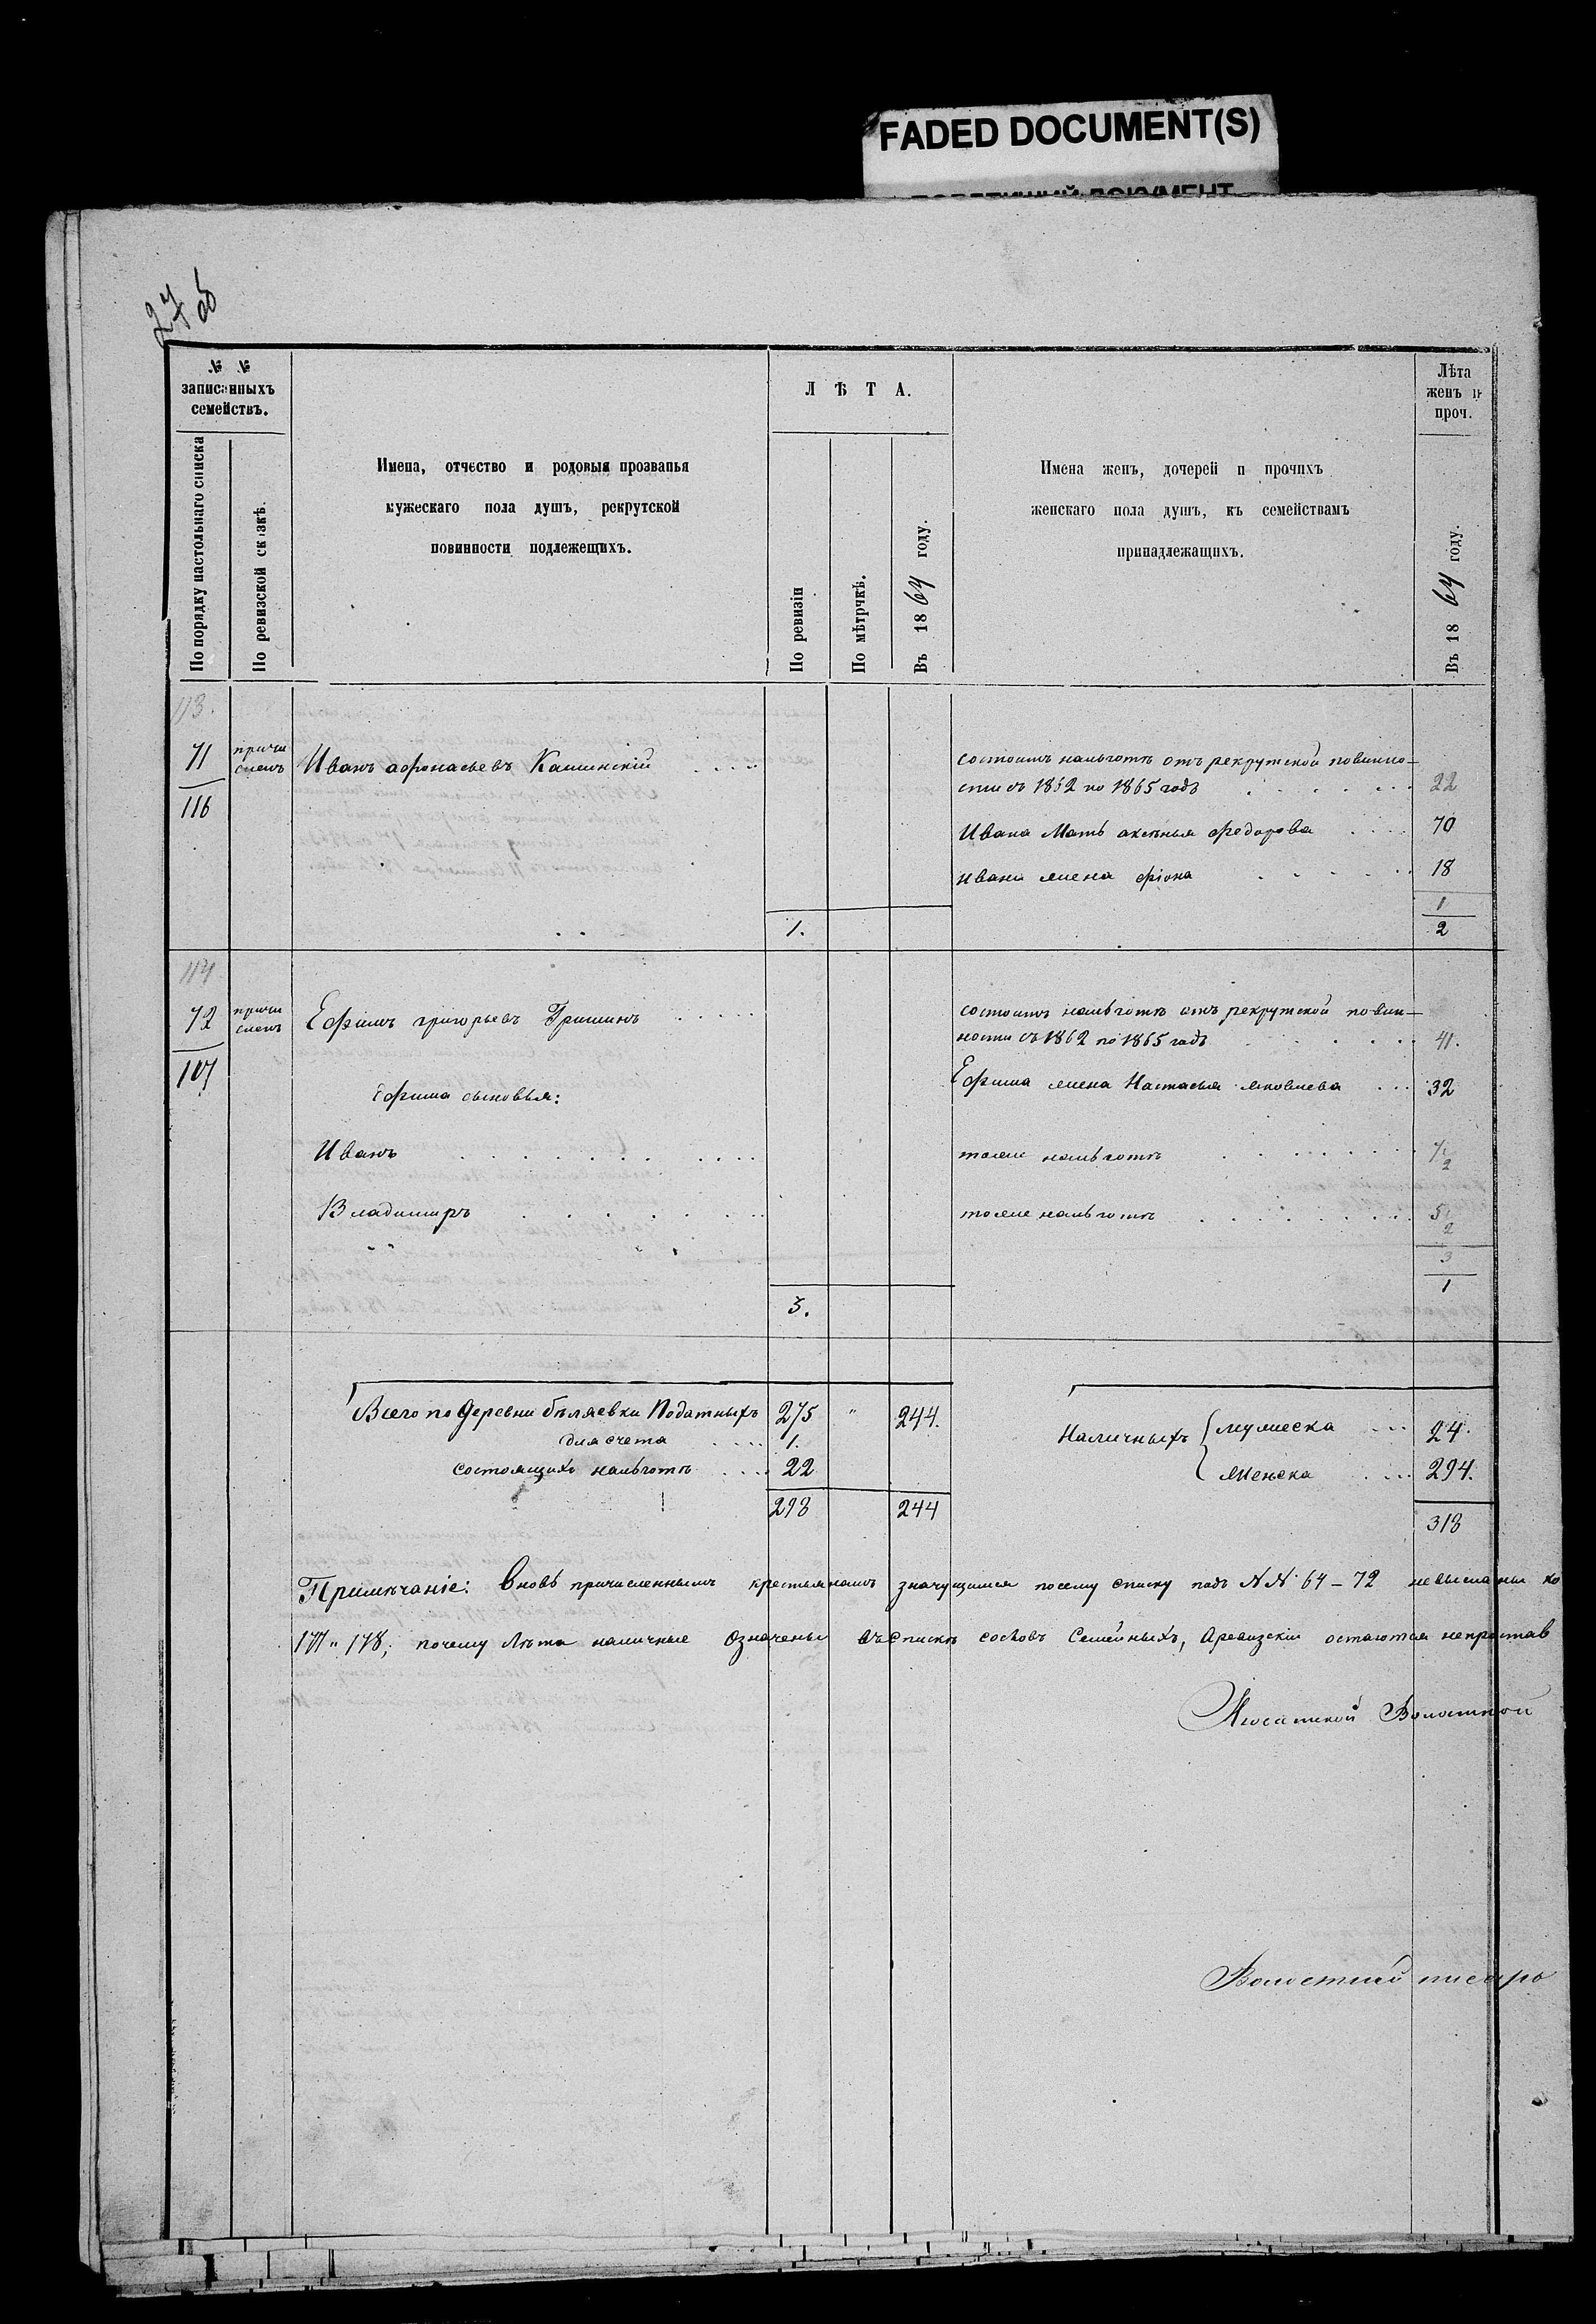 FADED DOCUMENT(S)
27 об
№ №
записанныхъ
семействъ.
По порядку настольнаго списка
По ревизской сказкѣ.
Имена, отчество и родовыя прозванья
мужескаго пола душъ, рекрутской
повинности подлежещихъ.
ЛѢТА.
По ревизіи
По мѣтрчкѣ.
Въ 1864 году.
Имена женъ, дочерей и прочихъ
женскаго пола душъ, къ семействамъ
принадлежащихъ.
Лѣта
женъ и
проч.
Въ 1864 году.
113.
71
116
причи
сленъ
Иванъ афонасьевъ Кашинскій
состоитъ нальготѣ отъ рекрутской повинно-
сти съ 1862 по 1865 годъ 22
Ивана Мать аксѣнья федорова 70
Ивана жена 18
1. 1
2
114
72
117
причи
сленъ
Ефимъ григорьевъ Гришинъ
состоитъ нальготѣ отъ рекрутской повин-
ности съ 1862 по 1865 годъ 41.
Ефима жена Настасья яковлева 32
Ефима сыновья:
Иванъ тоже нальготѣ 7 1/2
Владимиръ тоже нальготѣ 5 1/2
3. 3
1
Всего по деревни бѣляевки Податныхъ 275 " 244.
для счета 1.
состоящихъ нальготѣ 22
298 244
Наличныхъ { мужеска 24.
женска 294.
318
Примѣчаніе: Вновь причисленнымъ крестьянамъ значущимся посему списку подъ NN 64-72 невысланы ко
177 " 178; почему Лѣта наличные Означены въ спискѣ со словъ Семейныхъ, Аревизскія остаются непростав
Волостной
Волостной писарь